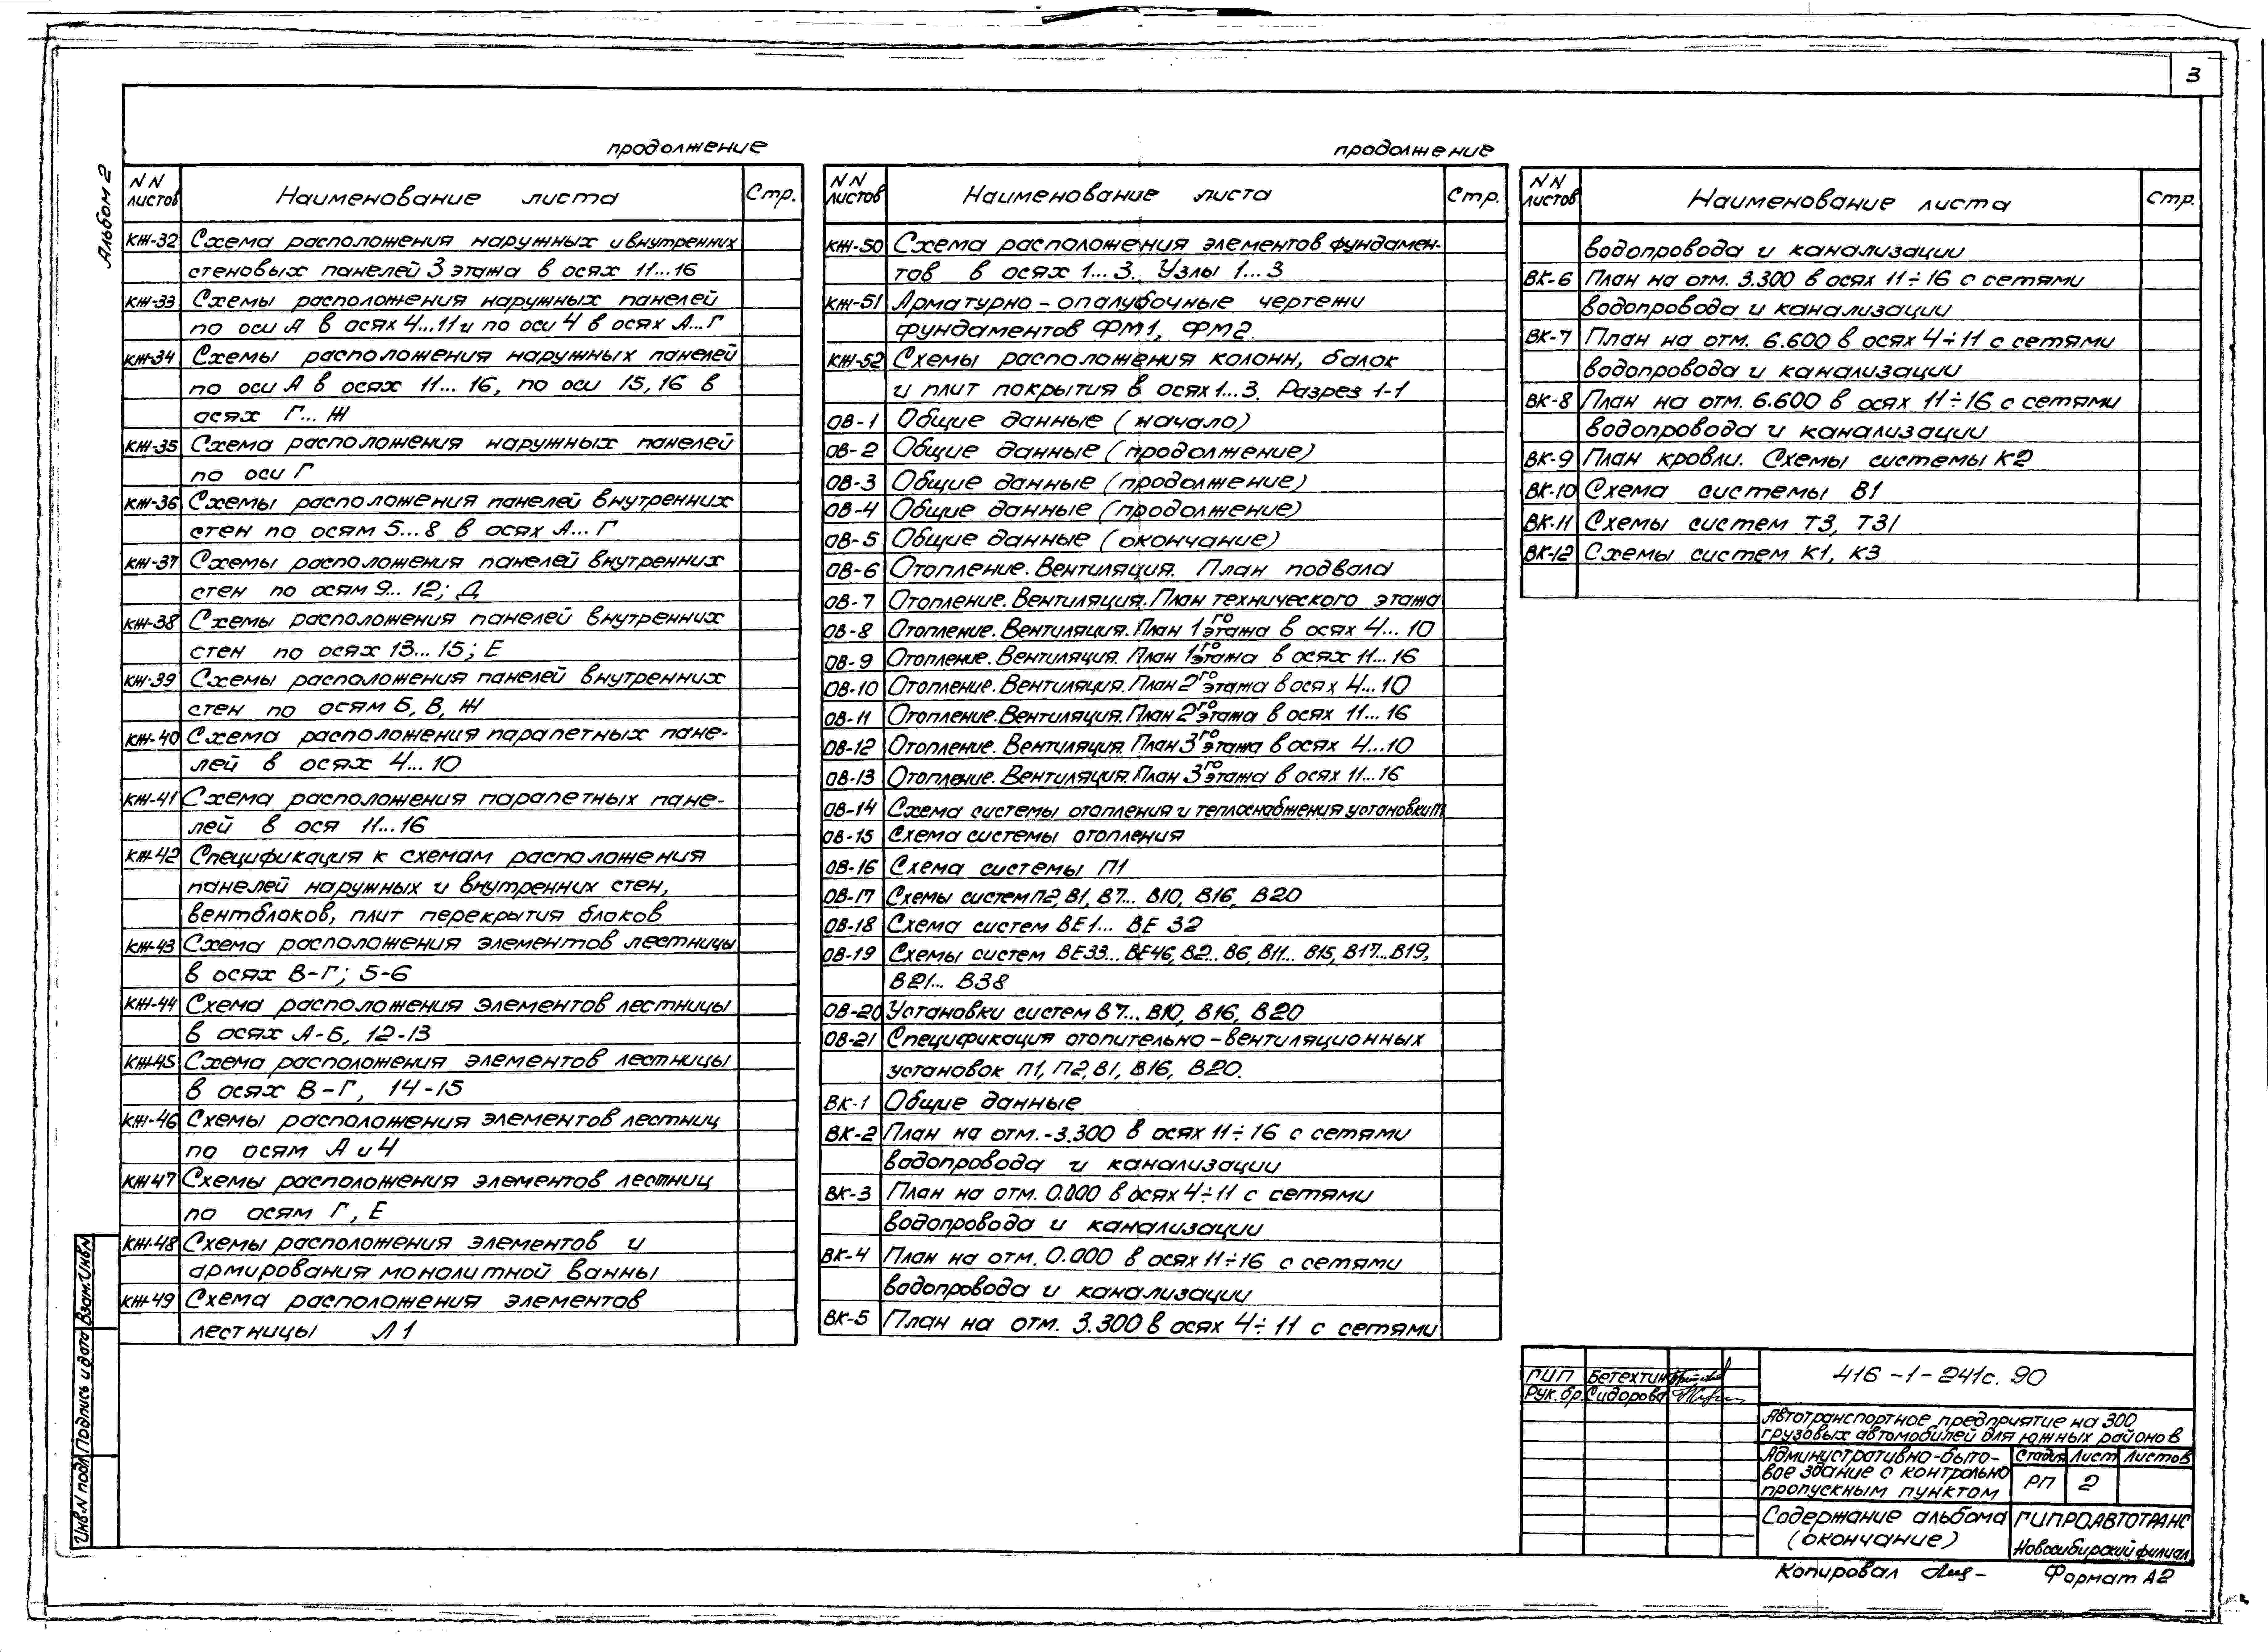 3
Альбом 2
продолжение
NN листов Наименование листа Стр.
КЖ-32 Схема расположения наружных и внутренних
стеновых панелей 3 этажа в осях 11...16
КЖ-33 Схемы расположения наружных панелей
по оси А в осях 4...11 и по оси 4 в осях А...Г
КЖ-34 Схемы расположения наружных панелей
по оси А в осях 11...16, по оси 15,16 в
осях Г...Ж
КЖ-35 Схема расположения наружных панелей
по оси Г
КЖ-36 Схемы расположения панелей внутренних
стен по осям 5...8 в осях А...Г
КЖ-37 Схемы расположения панелей внутренних
стен по осям 9..12; Д
КЖ-38 Схемы расположения панелей внутренних
стен по осях 13...15; Е
КЖ-39 Схемы расположения панелей внутренних
стен по осям Б, В, Ж
КЖ-40 Схема расположения парапетных пане-
лей в осях 4...10
КЖ-41 Схема расположения парапетных пане-
лей в ося 11...16
КЖ-42 Спецификация к схемам расположения
панелей наружных и внутренних стен,
вентблоков, плит перекрытия блоков
КЖ-43 Схема расположения элементов лестницы
в осях В-Г; 5-6
КЖ-44 Схема расположения элементов лестницы
в осях А-Б, 12-13
КЖ-45 Схема расположения элементов лестницы
в осях В-Г, 14-15
КЖ-46 Схемы расположения элементов лестниц
по осям А и 4
КЖ 47 Схемы расположения элементов лестниц
по осям Г, Е
КЖ-48 Схемы расположения элементов и
армирования монолитной ванны
КЖ-49 Схема расположения элементов
лестницы Л1
продолжение
NN листов Наименование листа Стр.
КЖ-50 Схема расположения элементов фундамен-
тов в осях 1...3. Узлы 1...3
КЖ-51 Арматурно-опалубочные чертежи
фундаментов ФМ1, ФМ2.
КЖ-52 Схемы расположения колонн, балок
и плит покрытия в осях 1...3. Разрез 1-1
ОВ-1 Общие данные (начало)
ОВ-2 Общие данные (продолжение)
ОВ-3 Общие данные (продолжение)
ОВ-4 Общие данные (продолжение)
ОВ-5 Общие данные (окончание)
ОВ-6 Отопление. Вентиляция. План подвала
ОВ-7 Отопление. Вентиляция. План технического этажа
ОВ-8 Отопление. Вентиляция. План 1го этажа в осях 4...10
ОВ-9 Отопление. Вентиляция. План 1го этажа в осях 11...16
ОВ-10 Отопление. Вентиляция. План 2го этажа в осях 4...10
ОВ-11 Отопление. Вентиляция. План 2го этажа в осях 11...16
ОВ-12 Отопление. Вентиляция. План 3го этажа в осях 4...10
ОВ-13 Отопление. Вентиляция. План 3го этажа в осях 11...16
ОВ-14 Схема системы отопления и теплоснабжения установки
ОВ-15 Схема системы отопления
ОВ-16 Схема системы П1
ОВ-17 Схемы систем П2, В1, В7...В10, В16, В20
ОВ-18 Схема систем ВЕ1...ВЕ 32
ОВ-19 Схемы систем ВЕ33...ВЕ46, В2...В6, В11...В15, В17...В19,
В21...В38
ОВ-20 Установки систем В7...В10, В16, В20
ОВ-21 Спецификация отопительно-вентиляционных
установок П1, П2, В1, В16, В20.
ВК-1 Общие данные
ВК-2 План на отм. -3.300 в осях 11÷16 с сетями
водопровода и канализации
ВК-3 План на отм. 0.000 в осях 4÷11 с сетями
водопровода и канализации
ВК-4 План на отм. 0.000 в осях 11÷16 с сетями
водопровода и канализации
ВК-5 План на отм. 3.300 в осях 4÷11 с сетями
NN листов Наименование листа Стр.
водопровода и канализации
ВК-6 План на отм. 3.300 в осях 11÷16 с сетями
водопровода и канализации
ВК-7 План на отм. 6.600 в осях 4÷11 с сетями
водопровода и канализации
ВК-8 План на отм. 6.600 в осях 11÷16 с сетями
водопровода и канализации
ВК-9 План кровли. Схемы системы К2
ВК-10 Схема системы В1
ВК-11 Схемы систем Т3, Т31
ВК-12 Схемы систем К1, К3
Инв.N подл Подпись и дата Взам.Инв.N
ГИП Бетехтин
Рук.бр. Сидорова
416-1-241с.90
Автотранспортное предприятие на 300
грузовых автомобилей для южных районов
Административно-быто-
вое здание с контрольно
пропускным пунктом
Стадия Лист Листов
РП 2
Содержание альбома
(окончание)
ГИПРОАВТОТРАНС
Новосибирский филиал
Копировал
Формат А2